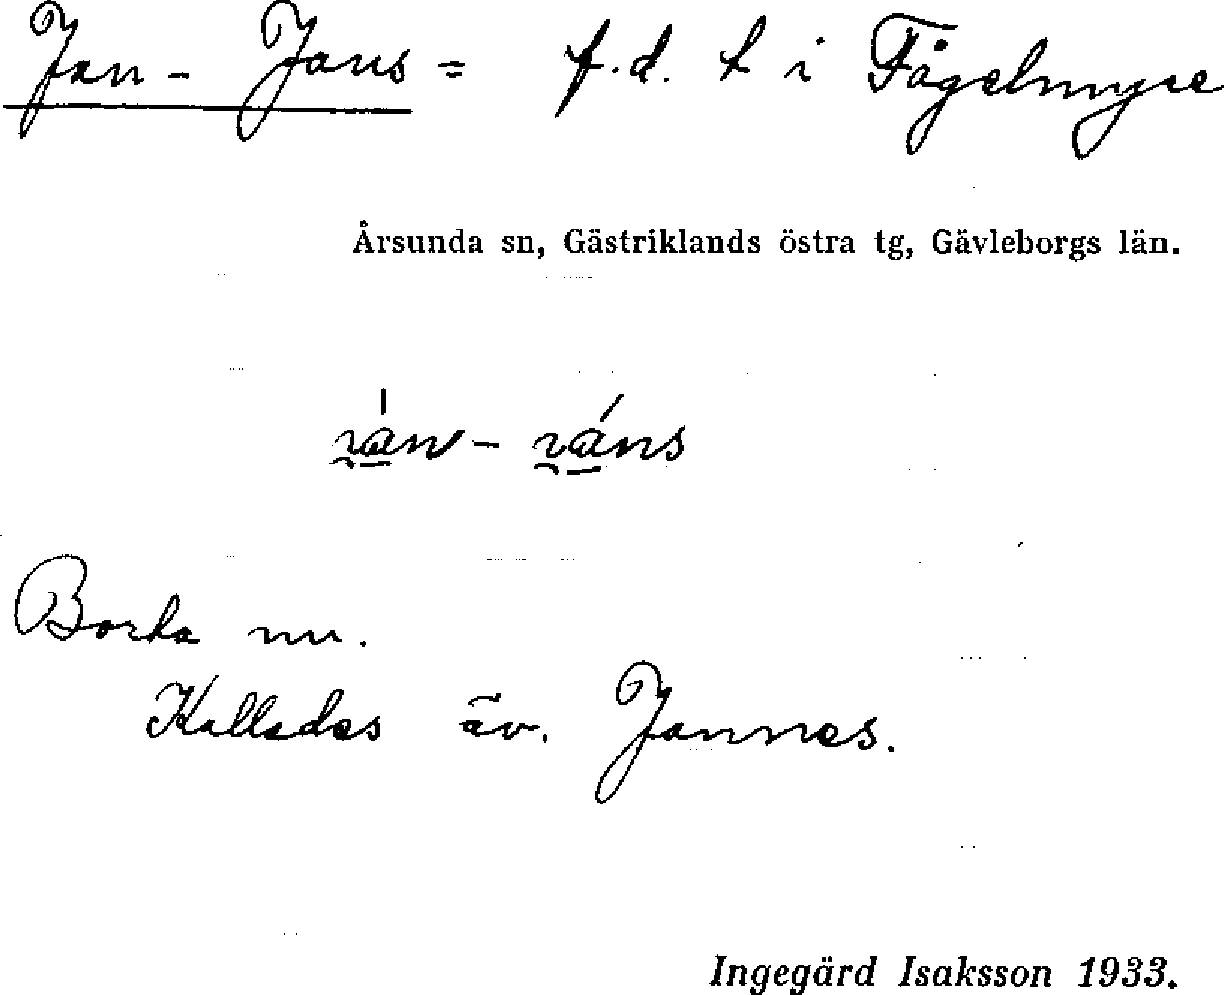 Jan-Jans = f.d. t i Fågelmyre
Årsunda sn, Gästriklands östra tg, Gävleborgs län.
Borta nu.
Kallades äv. Jannes.
Ingegärd Isaksson 1933.